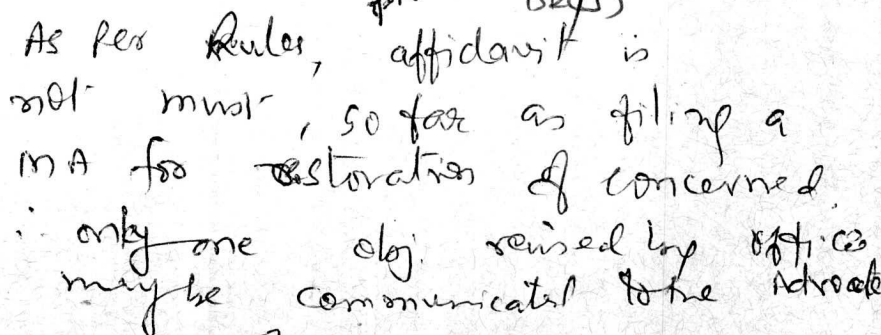 As Per Rules, affidavit is
not must, so far as filing a
MA for restoration of concerned.
∴ only one obj. raised by office
may be communicated to the Advocate